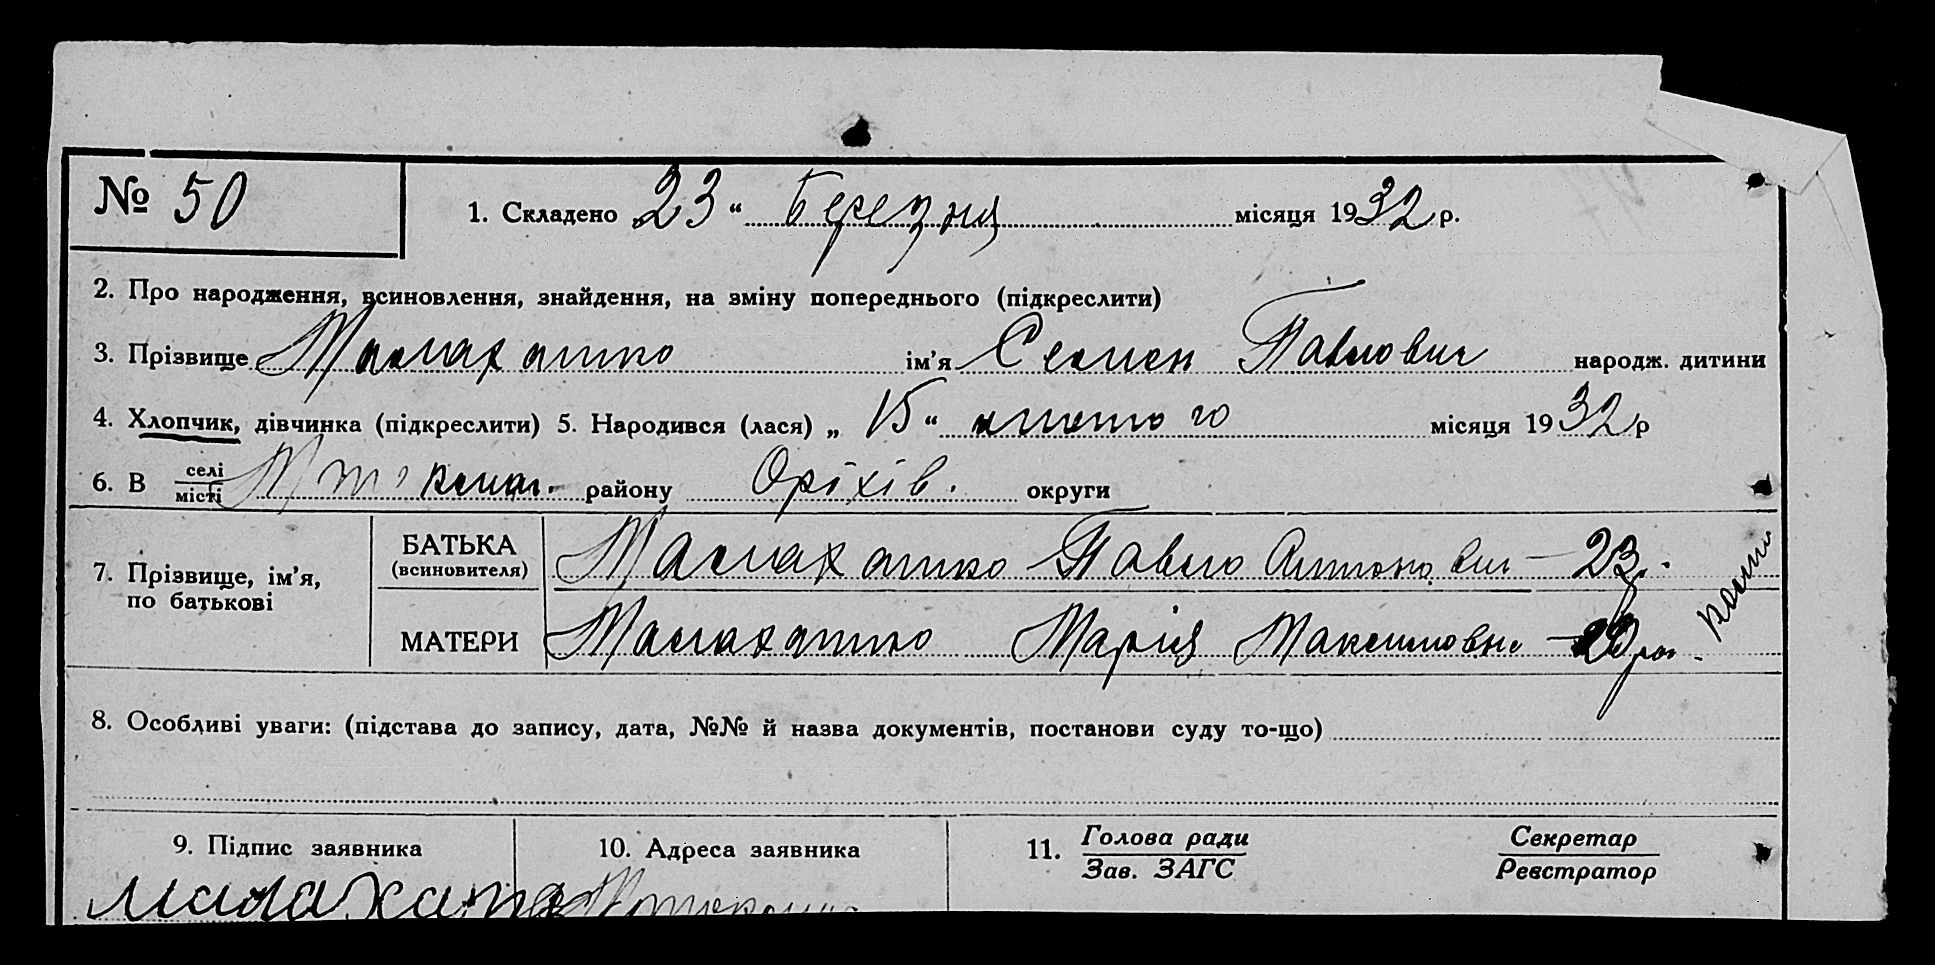 № 50
1. Складено 23 “ Березня місяця 1932 р.
2. Про народження, всиновлення, знайдення, на зміну попереднього (підкреслити)
3. Прізвище Малахатко ім’я Семен Павлович народж. дитини
4. Хлопчик, дівчинка (підкреслити) 5. Народився (лася) „ 15 “ лютого місяця 1932 р
6. В селі місті району Оріхів. округи
7. Прізвище, ім’я, по батькові
БАТЬКА (всиновителя) Малахатко Павло Антонович — 23
МАТЕРИ Малахатко Марія Максимовна — 20
8. Особливі уваги: (підстава до запису, дата, №№ й назва документів, постанови суду то-що)
9. Підпис заявника 10. Адреса заявника 11. Голова ради Секретар
Зав. ЗАГС Реєстратор